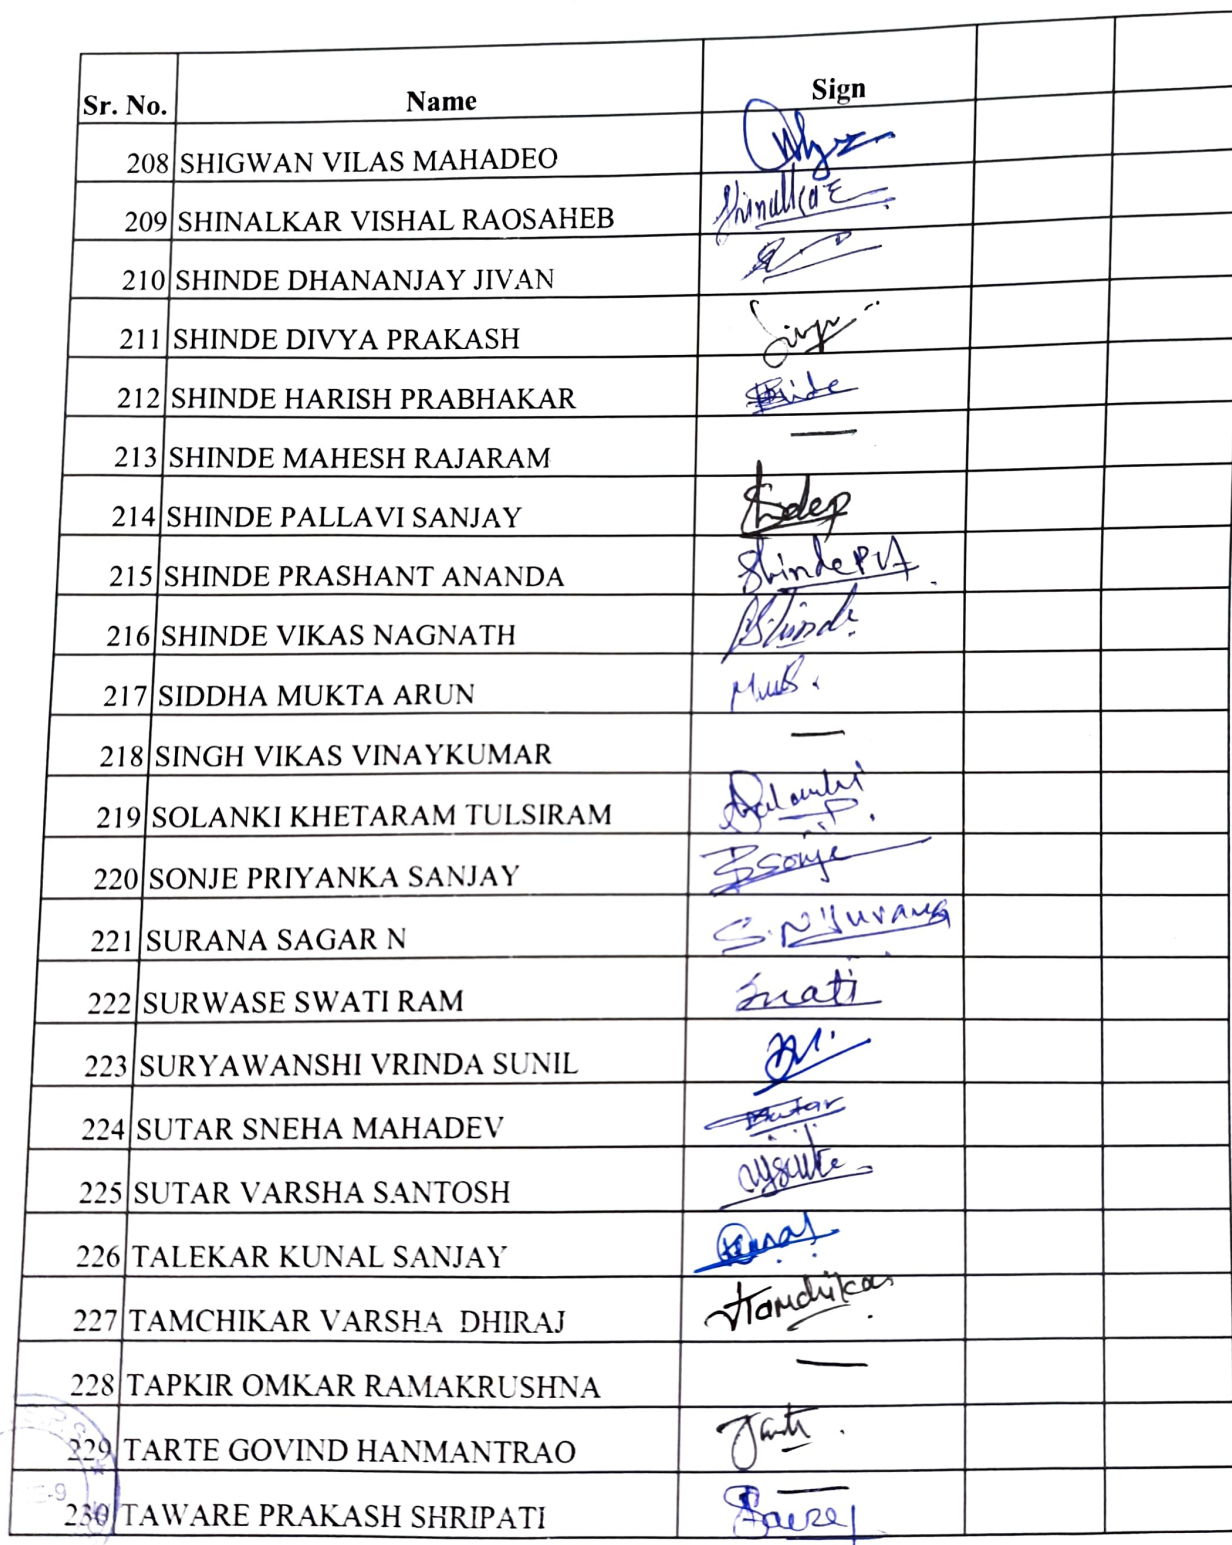 Sr. No. Name Sign
208 SHIGWAN VILAS MAHADEO
209 SHINALKAR VISHAL RAOSAHEB Shinalkar
210 SHINDE DHANANJAY JIVAN
211 SHINDE DIVYA PRAKASH
212 SHINDE HARISH PRABHAKAR
213 SHINDE MAHESH RAJARAM —
214 SHINDE PALLAVI SANJAY
215 SHINDE PRASHANT ANANDA Shinde P A
216 SHINDE VIKAS NAGNATH
217 SIDDHA MUKTA ARUN
218 SINGH VIKAS VINAYKUMAR —
219 SOLANKI KHETARAM TULSIRAM
220 SONJE PRIYANKA SANJAY PSonje
221 SURANA SAGAR N
222 SURWASE SWATI RAM Swati
223 SURYAWANSHI VRINDA SUNIL
224 SUTAR SNEHA MAHADEV
225 SUTAR VARSHA SANTOSH
226 TALEKAR KUNAL SANJAY Kunal
227 TAMCHIKAR VARSHA DHIRAJ
228 TAPKIR OMKAR RAMAKRUSHNA —
229 TARTE GOVIND HANMANTRAO
230 TAWARE PRAKASH SHRIPATI —